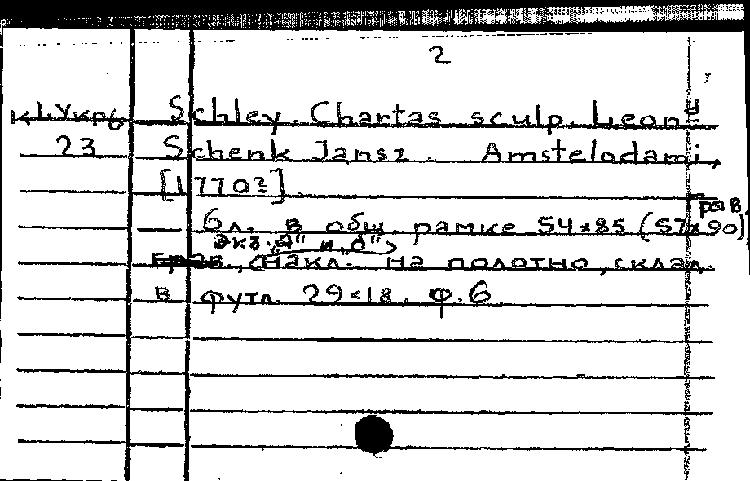 2
К 1. Укр6 Schley. Chartas sculp. Leon^d
23 Schenk Jansz. Amstelodami,
[1770?].
6 л. в общ. рамке 54×85 (57×90) грав.
Экз. „а" и „б"
Грав., (накл. на полотно, склад.
в футл. 29×18. ф. 6